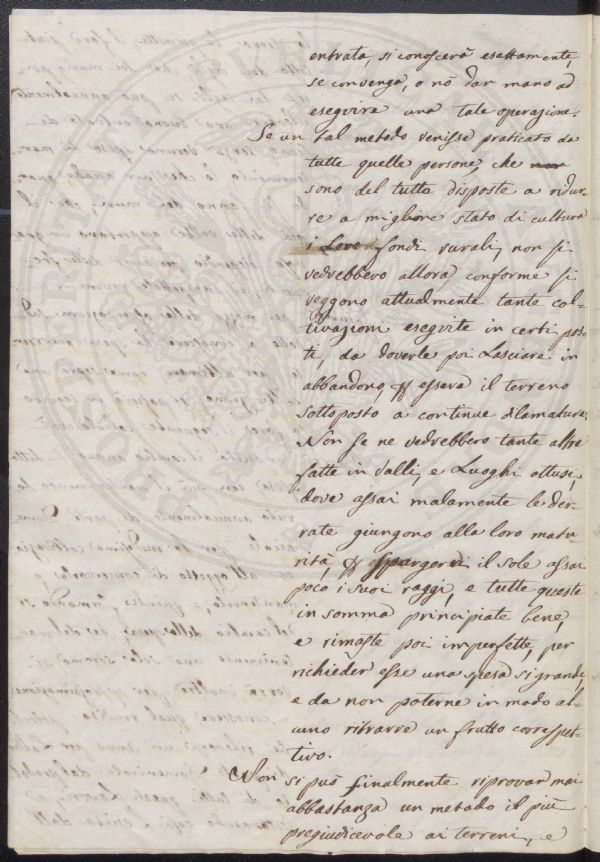 entrata, si conoscerà esattamente,
se convenga, o nò dar mano ad
eseguire una tale operazione.
Se un tal metodo venisse praticato da
tutte quelle persone, che non
sono del tutto disposte a ridur-
re a migliore stato di cultura
i Loro fondi rurali, non si
vedrebbero allora, conforme si
veggono attualmente tante col-
tivazioni eseguite in certi pos-
ti, da doverle poi Lasciare in
abbandono, essere il terreno
sottoposto a continue dilamature;
Non se ne vedrebbero tante altre
fatte in Valli, e Luoghi ottusi,
dove assai malamente le der-
rate giungono alla loro matu
rità, spargervi il sole assai
poco i suoi raggi, e tutte queste
in somma principiate bene,
e rimaste poi imperfette, per
richieder esse una spesa si grande,
e da non poterne in modo al-
cuno ritrarre un frutto correspet-
tivo.
Non si può finalmente riprovar mai
abbastanza un metodo il più
pregiudicevole ai terreni, e